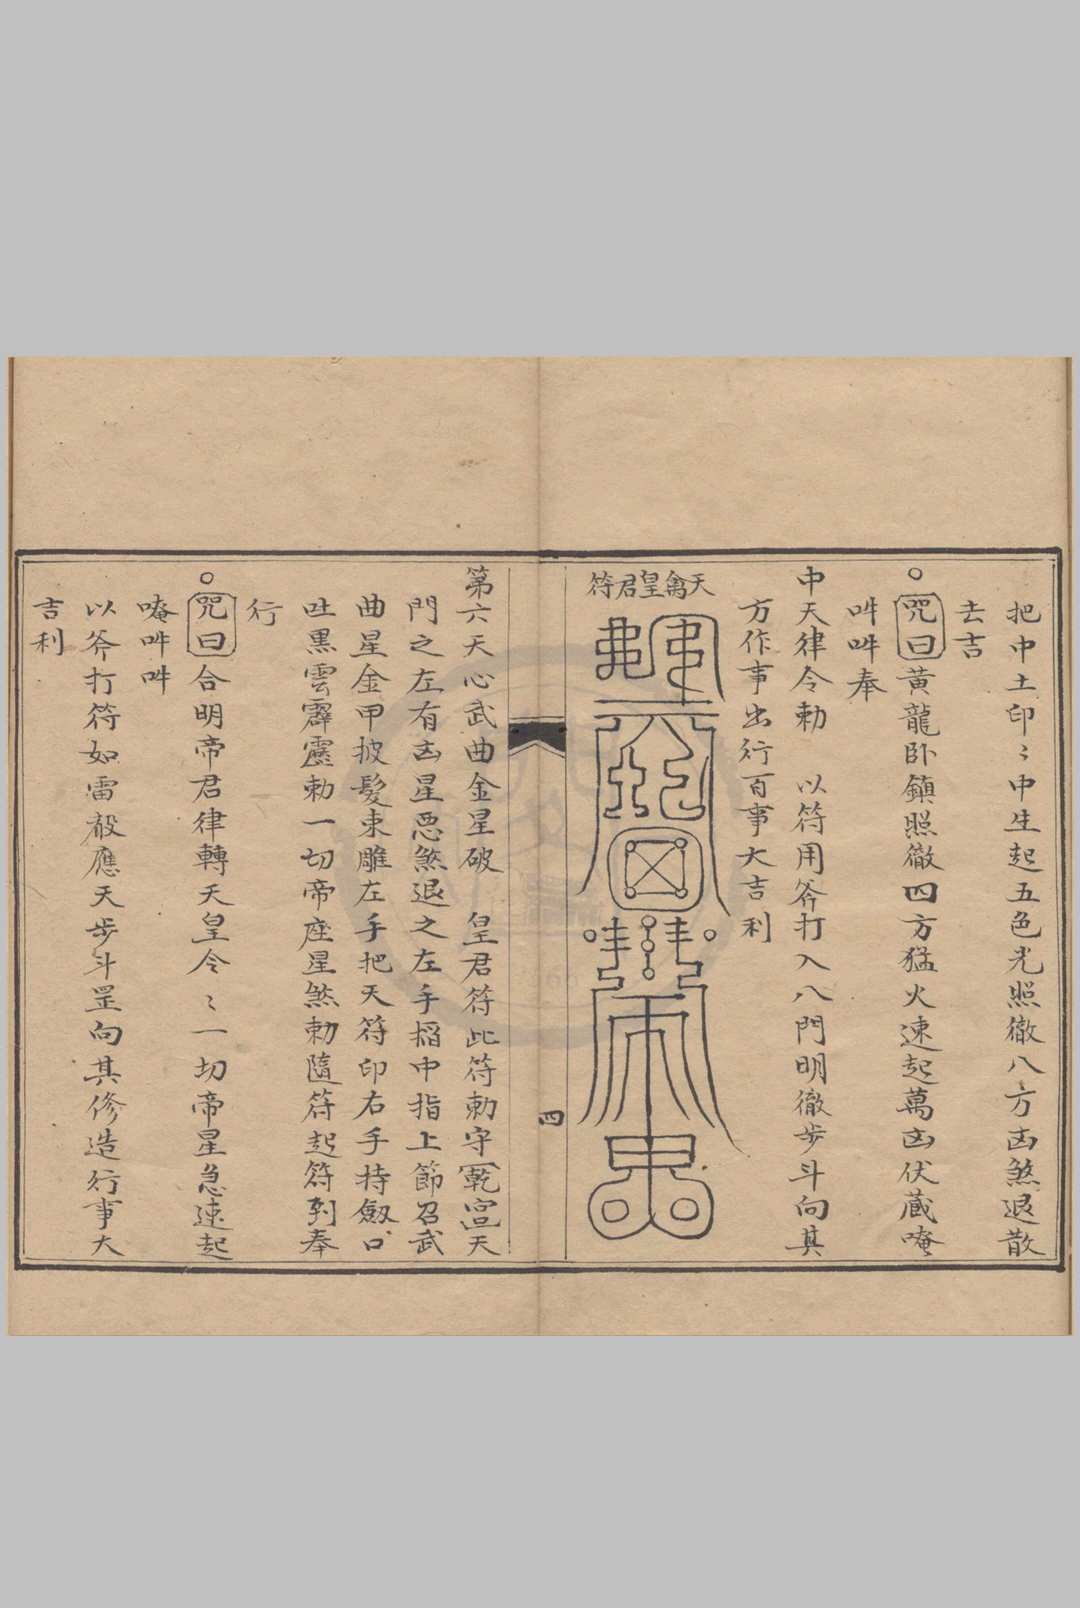 把中土印〻中生起五色光照徹八方凶煞退散
去吉
○咒曰黃龍卧鎮照徹四方猛火速起萬凶伏藏唵
吽吽奉
中天律令勅　以符用斧打入八門明徹步斗向其
方作事出行百事大吉利
天禽皇君符
四
第六天心武曲金星破　皇君符此符勅守乾宮天
門之左有凶星惡煞退之左手搯中指上節召武
曲星金甲披髮束雕左手把天符印右手持劔口
吐黑雲霹靂勅一切帝座星煞勅隨符起符到奉
行
○咒曰合明帝君律轉天皇令〻一切帝星急速起
唵吽吽
以斧打符如雷殺應天步斗罡向其修造行事大
吉利